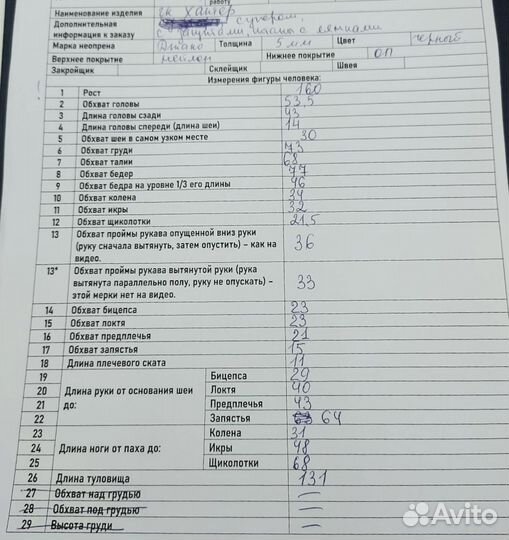 работу
Наименование изделия гк Хантер
Дополнительная с супором,
информация к заказу с защитами, штаны с лямками
Марка неопрена Дайко Толщина 5 мм Цвет черный
Верхнее покрытие нейлон Нижнее покрытие ОП
Закройщик Склейщик Швея
Измерения фигуры человека:
1 Рост 160
2 Обхват головы 53,5
3 Длина головы сзади 43
4 Длина головы спереди (длина шеи) 14
5 Обхват шеи в самом узком месте 30
6 Обхват груди 73
7 Обхват талии 68
8 Обхват бедер 77
9 Обхват бедра на уровне 1/3 его длины 46
10 Обхват колена 34
11 Обхват икры 32
12 Обхват щиколотки 21,5
13 Обхват проймы рукава опущенной вниз руки
(руку сначала вытянуть, затем опустить) – как на 36
видео.
13* Обхват проймы рукава вытянутой руки (рука
вытянута параллельно полу, руку не опускать) – 33
этой мерки нет на видео.
14 Обхват бицепса 23
15 Обхват локтя 23
16 Обхват предплечья 21
17 Обхват запястья 15
18 Длина плечевого ската 11
19 Бицепса 29
20 Длина руки от основания шеи Локтя 40
21 до: Предплечья 43
22 Запястья 64
23 Колена 31
24 Длина ноги от паха до: Икры 48
25 Щиколотки 68
26 Длина туловища 131
27 Обхват над грудью —
28 Обхват под грудью —
29 Высота груди —
Avito